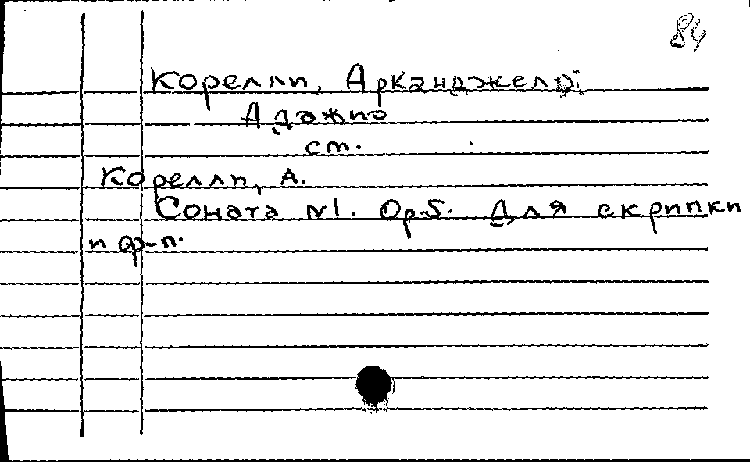 84
Корелли, Арканджело:
Адажио
см.
Корелли, А.
Соната №1. Op.5. Для скрипки
и ф-п.